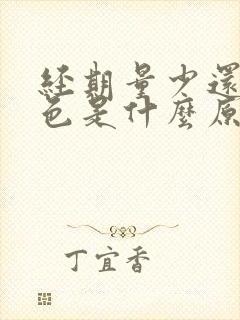 經期量少還
色是什麼原
丁宜香